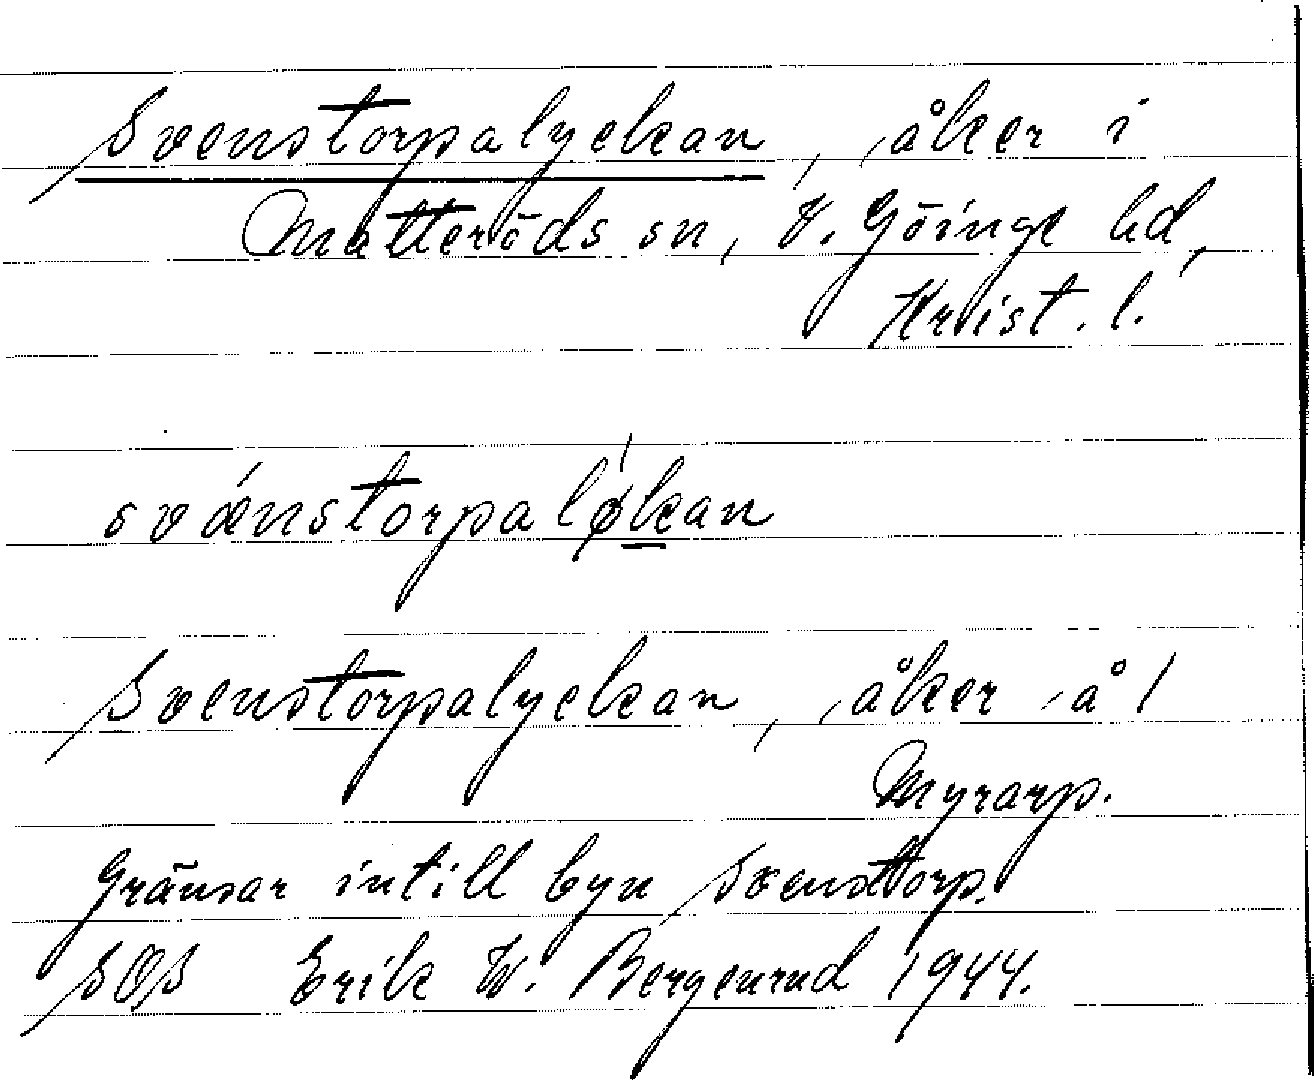 Svenstorpalyckan, åker i
Matteröds sn, V. Göinge hd,
Krist. l.
svǽnstorpalø̀kan
Svenstorpalyckan, åker å 1
Myrarp.
Gränsar intill byn Svenstorp.
SOS Erik W. Bergenrud 1944.